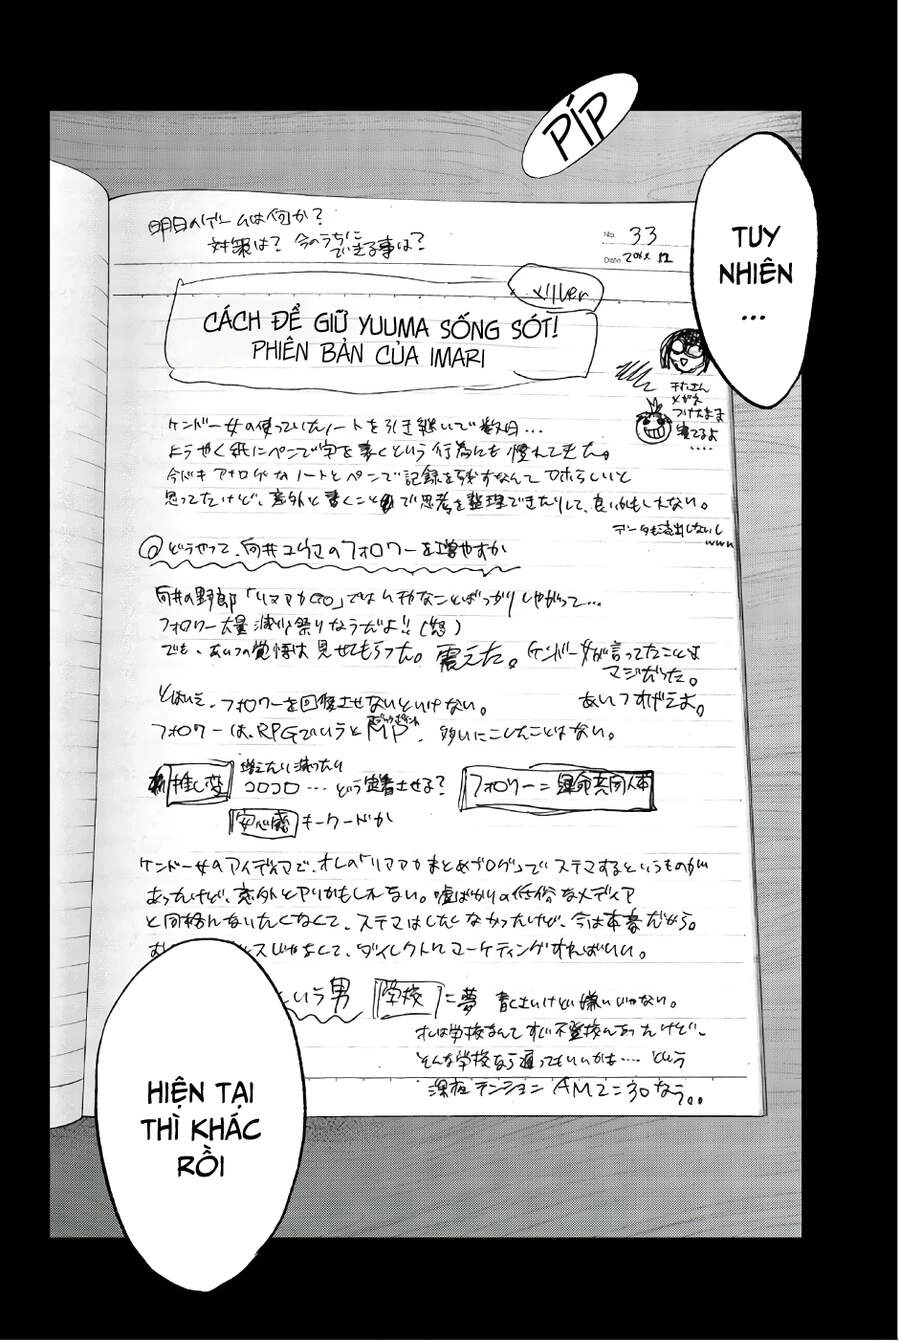 PÍP
TUY
NHIÊN
...
明日のゲームは何か?
対策は? 今のうちに
できる事は?
No. 33
Date
CÁCH ĐỂ GIỮ YUUMA SỐNG SÓT!
PHIÊN BẢN CỦA IMARI
メガネ
つけたまま
寝てるよ
....
ケンドー女の使っていたノートを引き継いで数日...
ようやく紙にペンで字を書くという行為にも慣れてきた。
今どきアナログなノートとペンで記録を残すなんて
思ってたけど、意外と書くことで思考を整理できたりして、良いかもしれない。
データも流出しないし
www
◎どうやって、向井ユウマのフォロワーを増やすか
向井の野郎「リアアカGO」では
フォロワー大量減少祭りなうだよ!!(怒)
でも、あいつの覚悟は見せてもらった。震えた。ケンドー女が言ってたことは
マジだった。
あいつすげえよ。
とはいえ、フォロワーを回復させないといけない。
フォロワーは、RPGでいうとMP、多いにこしたことはない。
推し変
増えたり減ったり
コロコロ...どう定着させる?
フォロワー=運命共同体
安心感 キーワードか
ケンドー女のアイディアで、オレの「リアアカまとめブログ」でステマするというものが
あったけど、意外とアリかもしれない。嘘ばかりの低俗なメディア
と同格になりたくなくて、ステマはしたくなかったけど、今は本音だから。
じゃなくて、ダイレクトにマーケティングすればいい。
という男 学校=夢 青くさいけど嫌いじゃない。
オレは学校なんてすぐ不登校になったけど、
そんな学校なら通ってもいいかな....という
深夜テンション AM2:30なう。。
HIỆN TẠI
THÌ KHÁC
RỒI